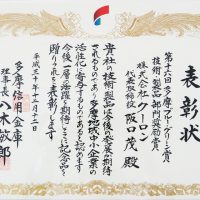 表彰状
第十六回多摩ブルーグリーン賞
技術・製品部門奨励賞
株式会社クーロン
代表取締役 阪口茂殿
貴社の技術・製品は今後の発展が期待
されるものであり多摩地域中小企業の
活性化に寄与するものであると認めます
今後一層の活躍を期待しここに記念品を
贈りこれを表彰します
平成三十年十二月十二日
多摩信用金庫
理事長 八木敏郎